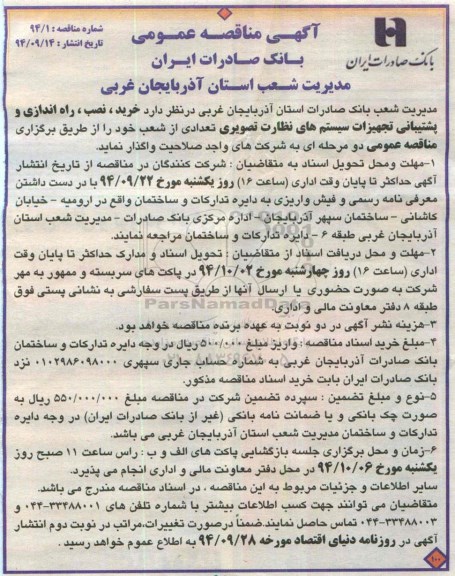 آگهی مناقصه عمومی
بانک صادرات ایران
مدیریت شعب استان آذربایجان غربی
شماره مناقصه : ۹۴/۱
تاریخ انتشار : ۹۴/۰۹/۱۴
بانک صادرات ایران
مدیریت شعب بانک صادرات استان آذربایجان غربی درنظر دارد خرید ، نصب ، راه اندازی و
پشتیبانی تجهیزات سیستم های نظارت تصویری تعدادی از شعب خود را از طریق برگزاری
مناقصه عمومی دو مرحله ای به شرکت های واجد صلاحیت واگذار نماید.
۱-مهلت ومحل تحویل اسناد به متقاضیان : شرکت کنندگان در مناقصه از تاریخ انتشار
آگهی حداکثر تا پایان وقت اداری (ساعت ۱۶) روز یکشنبه مورخ ۹۴/۰۹/۲۲ با در دست داشتن
معرفی نامه رسمی و فیش واریزی به دایره تدارکات و ساختمان واقع در ارومیه - خیابان
کاشانی - ساختمان سپهر آذربایجان - اداره مرکزی بانک صادرات - مدیریت شعب استان
آذربایجان غربی طبقه ۶ - دایره تدارکات و ساختمان مراجعه نمایند.
۲-مهلت و محل دریافت اسناد از متقاضیان : تحویل اسناد و مدارک حداکثر تا پایان وقت
اداری (ساعت ۱۶) روز چهارشنبه مورخ ۹۴/۱۰/۰۲ در پاکت های سربسته و ممهور به مهر
شرکت به صورت حضوری یا ارسال آنها از طریق پست سفارشی به نشانی پستی فوق
طبقه ۸ دفتر معاونت مالی و اداری.
۳-هزینه نشر آگهی در دو نوبت به عهده برنده مناقصه خواهد بود.
۴-مبلغ خرید اسناد مناقصه : واریز مبلغ ۵۰۰/۰۰۰ ریال در وجه دایره تدارکات و ساختمان
بانک صادرات آذربایجان غربی به شماره حساب جاری سپهری ۰۱۰۲۹۸۶۰۹۸۰۰۰ نزد
بانک صادرات ایران بابت خرید اسناد مناقصه مذکور.
۵-نوع و مبلغ تضمین : سپرده تضمین شرکت در مناقصه مبلغ ۵۵۰/۰۰۰/۰۰۰ ریال به
صورت چک بانکی و یا ضمانت نامه بانکی (غیر از بانک صادرات ایران) در وجه دایره
تدارکات و ساختمان مدیریت شعب استان آذربایجان غربی می باشد.
۶-زمان و محل برگزاری جلسه بازگشایی پاکت های الف و ب : راس ساعت ۱۱ صبح روز
یکشنبه مورخ ۹۴/۱۰/۰۶ در محل دفتر معاونت مالی و اداری انجام می پذیرد.
سایر اطلاعات و جزئیات مربوط به این مناقصه ، در اسناد مناقصه مندرج می باشد.
متقاضیان می توانند جهت کسب اطلاعات بیشتر با شماره تلفن های ۳۳۴۸۸۰۰۱-۰۴۴ و
۳۳۴۸۸۰۰۳-۰۴۴ تماس حاصل نمایند.ضمناً درصورت تغییرات،مراتب در نوبت دوم انتشار
آگهی در روزنامه دنیای اقتصاد مورخه ۹۴/۰۹/۲۸ به اطلاع عموم خواهد رسید.
ParsNamadData